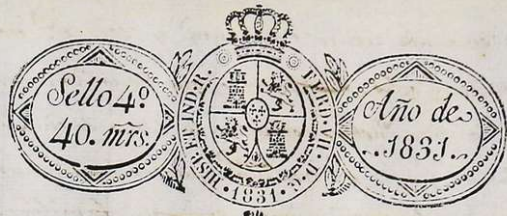 Sello 4º
40. mrs.
HISP. ET IND. R. FERD. VII. D. G. 1831.
Año de
..1831..